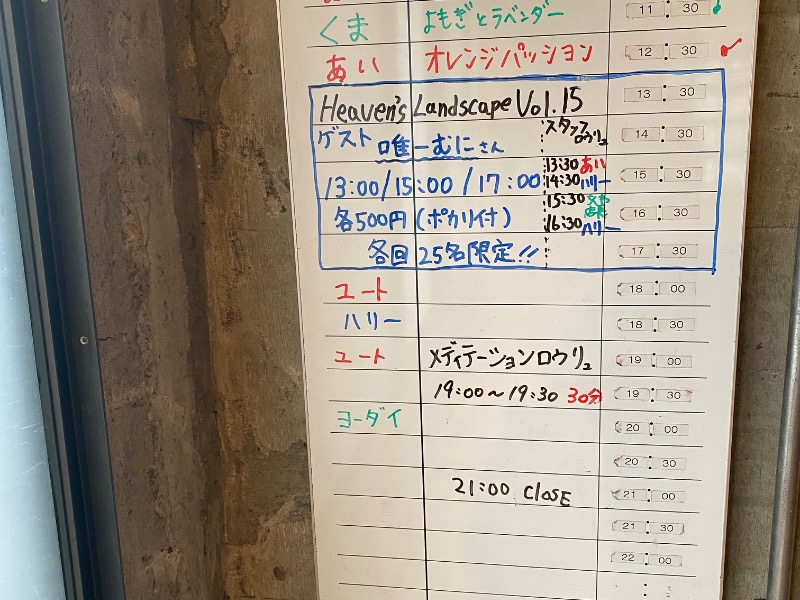 くま よもぎとラベンダー 11:30
あい オレンジパッション 12:30
Heaven's Landscape Vol.15 13:30
ゲスト 唯一むにさん スタッフロウリュ 14:30
13:00/15:00/17:00 13:30 あい 14:30 ハリー 15:30
各500円(ポカリ付) 15:30 16:30 ハリー 16:30
各回 25名限定!! 17:30
ユート 18:00
ハリー 18:30
ユート メディテーションロウリュ 19:00
19:00~19:30 30分 19:30
ヨーダイ 20:00
20:30
21:00 CLOSE 21:00
21:30
22:00